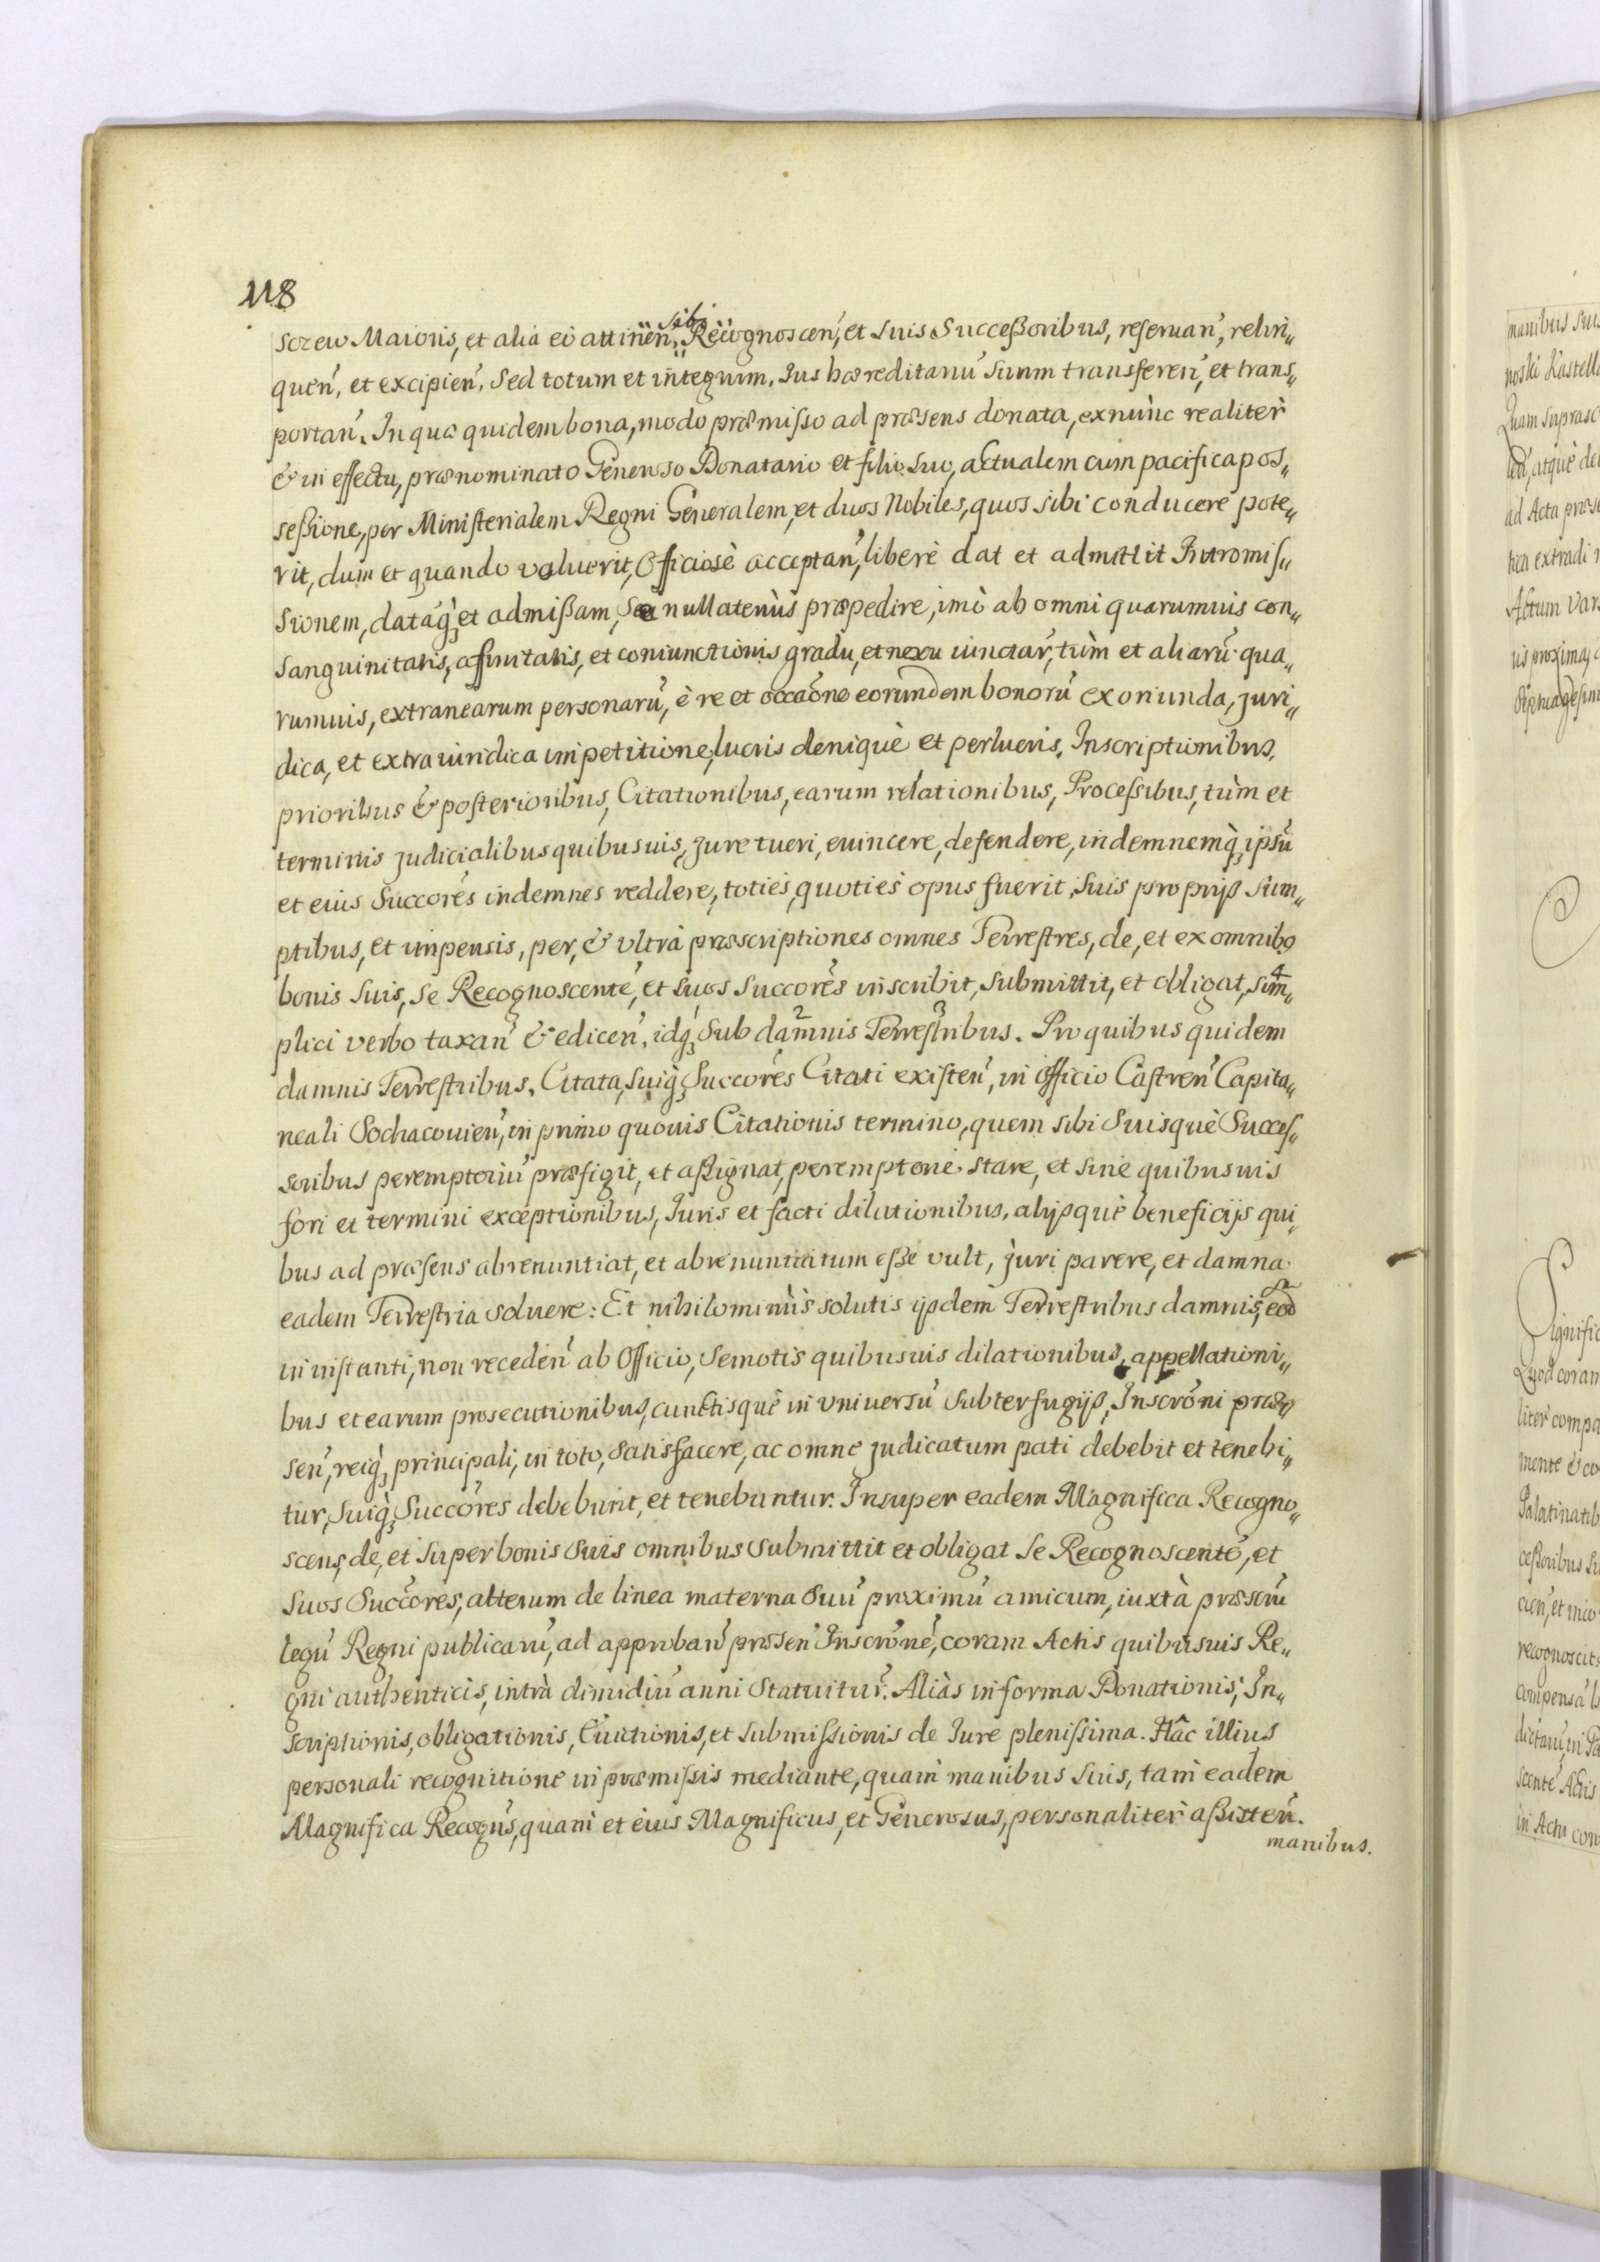 118
sibi
sczew Maioris, et alia ei attinen, Recognoscen, et suis Successoribus, reseruan, relin„
quen, et excipien. Sed totum et integrum Ius hæreditariũ Suum transferen, et trans„
portan. In quæ quidem bona, modo præmisso ad præsens donata, exnunc realiter
& in effectu, prænominato Generoso Donatario et filio suo, actualem cum pacifica pos„
sessione, per Ministerialem Regni Generalem, et duos Nobiles, quos sibi conducere pote„
rit, dum et quando voluerit, Officiosè acceptan, liberè dat et admittit Intromis„
sionem, datáq; et admissam, se nullatenùs præpedire, imò ab omni quarumuis con„
sanguinitatis, affinitatis, et coniunctionis gradu, et nexu iunctar, tùm et aliarũ qua„
rumuis, extranearum personarũ, è re et occaõne eorundem bonorũ exoriunda, juri„
dica, et extraiuridica impetitione, lucris deniquè et perlucris, Inscriptionibus,
prioribus & posterioribus, Citationibus, earum relationibus, Processibus, tùm et
terminis judicialibus quibusuis, jure tueri, euincere, defendere, indemnemq; ipsũ
et eius Succores indemnes reddere, toties, quoties opus fuerit, suis proprijs sum„
ptibus, et impensis, per, & vltrà præscriptiones omnes Terrestres, de, et ex omnibq
bonis suis, se Recognoscente, et suos Succores inscribit, submittit, et obligat, sim„
4
plici verbo taxan & edicen, idq; sub damnis Terrestribus. Pro quibus quidem
2 3
damnis Terrestribus, Citata, suiq; Succores Citati existen, in Officio Castren Capita„
neali Sochacouien, in primo quouis Citationis termino, quem sibi Suisquè Succes„
soribus peremptoriũ præfigit, et assignat, peremptoriè stare, et sine quibusuis
fori et termini exceptionibus, Juris et facti dilationibus, alijsquè beneficijs qui„
bus ad præsens abrenuntiat, et abrenuntiatum esse vult, juri parere, et damna
eadem Terrestria soluere: Et nihilominùs solutis ijsdem Terrestribus damnis, eod
in instanti, non receden ab Officio, semotis quibusuis dilationibus, appellationi„
bus et earum prosecutionibus, cunctisquè in vniuersũ subterfugijs, Inscrõni præ„
sen, reiq; principali, in toto, satisfacere, ac omne judicatum pati debebit et tenebi„
tur, suiq; Succores debebunt, et tenebuntur. Insuper eadem Magnifica Recogno„
scens, de, et super bonis suis omnibus submittit et obligat se Recognoscente, et
suos Succores, alterum de linea materna suũ proximũ amicum, iuxtà præscrũ
legũ Regni publicarũ, ad approban præsen Inscrõne, coram Actis quibusuis Re„
gni authenticis, intrà dimidiũ anni statuitur. Aliàs in forma Donationis, In„
scriptionis, obligationis, Euictionis, et submissionis de Jure plenissima. Hâc illius
personali recognitione in præmissis mediante, quam manibus suis, tam eadem
Magnifica Recogns, quam et eius Magnificus, et Generosus, personaliter assisten.
manibus.